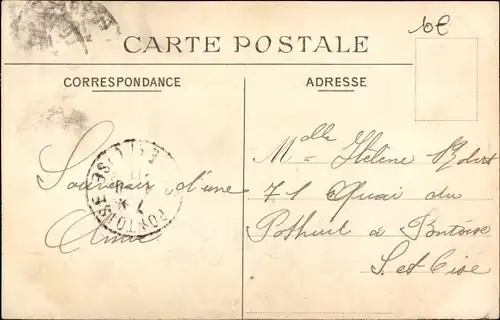 10E
CARTE POSTALE
CORRESPONDANCE
ADRESSE
Souvenir d'une
Amie
Mlle Hélène Robert
71 Quai du
Pothuis à Pontoise
S. et Oise
PONTOISE